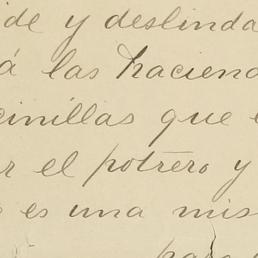 ide y deslinda
á las haciend
cinillas que
r el potrero y
es una mis